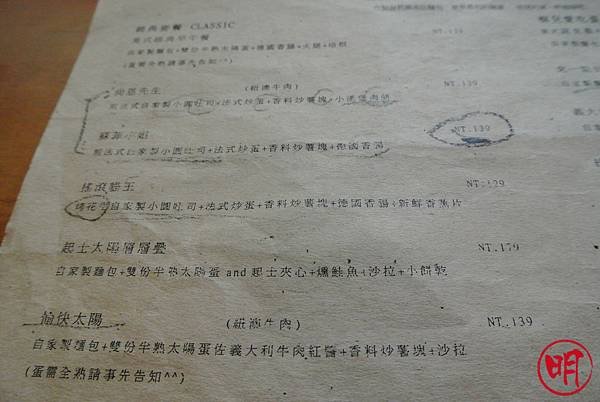 經典套餐 CLASSIC
美式經典早午餐
自家製麵包+雙份半熟太陽蛋+德國香腸+火腿+培根
(蛋需全熟請事先告知^^)
尚恩先生 (紐澳牛肉) NT.139
煎法式自家製小圓吐司+法式炒蛋+香料炒薯塊+小漢堡肉餅
蘇菲小姐 NT.139
煎法式自家製小圓吐司+法式炒蛋+香料炒薯塊+德國香腸
搖滾貓王 NT.129
自家製小圓吐司+法式炒蛋+香料炒薯塊+德國香腸+新鮮香蕉片
起士太陽層層疊 NT.179
自家製麵包+雙份半熟太陽蛋 and 起士夾心+燻鮭魚+沙拉+小餅乾
愉快太陽 (紐澳牛肉) NT.139
自家製麵包+雙份半熟太陽蛋佐義大利牛肉紅醬+香料炒薯塊+沙拉
(蛋需全熟請事先告知^^)
明